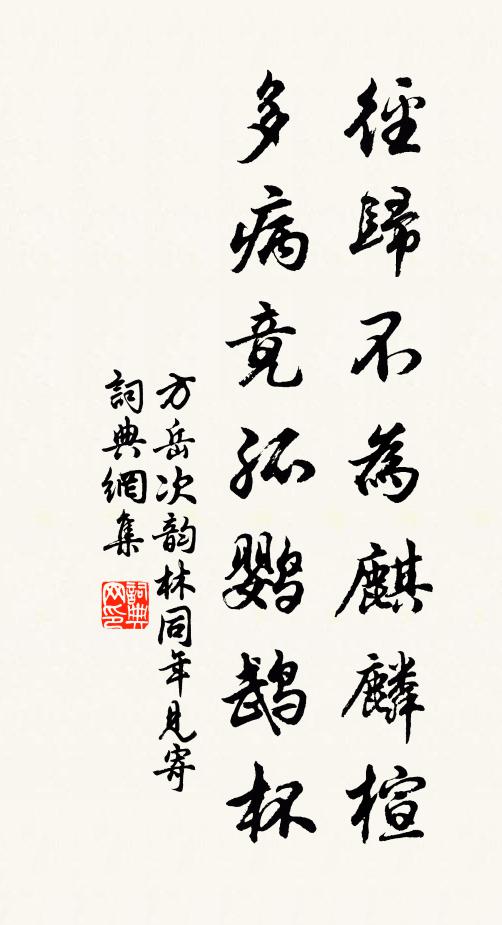 徑歸不為麒麟楦
多病竟孤鸚鵡杯
方岳次韵林同年見寄
詞典網集
詞典网印